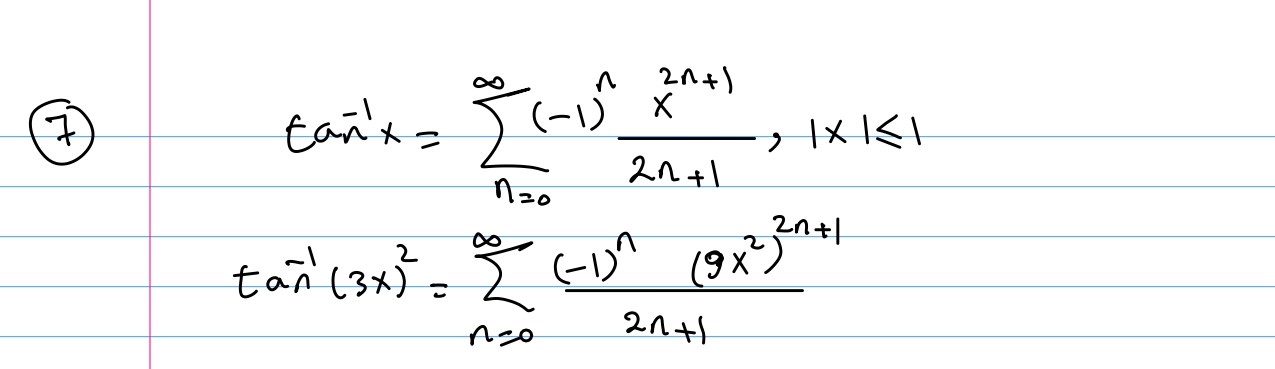 7 tan⁻¹x = ∑_{n=0}^{∞} (-1)ⁿ x^{2n+1}/(2n+1), |x|≤1
tan⁻¹(3x)² = ∑_{n=0}^{∞} (-1)ⁿ (9x²)^{2n+1}/(2n+1)